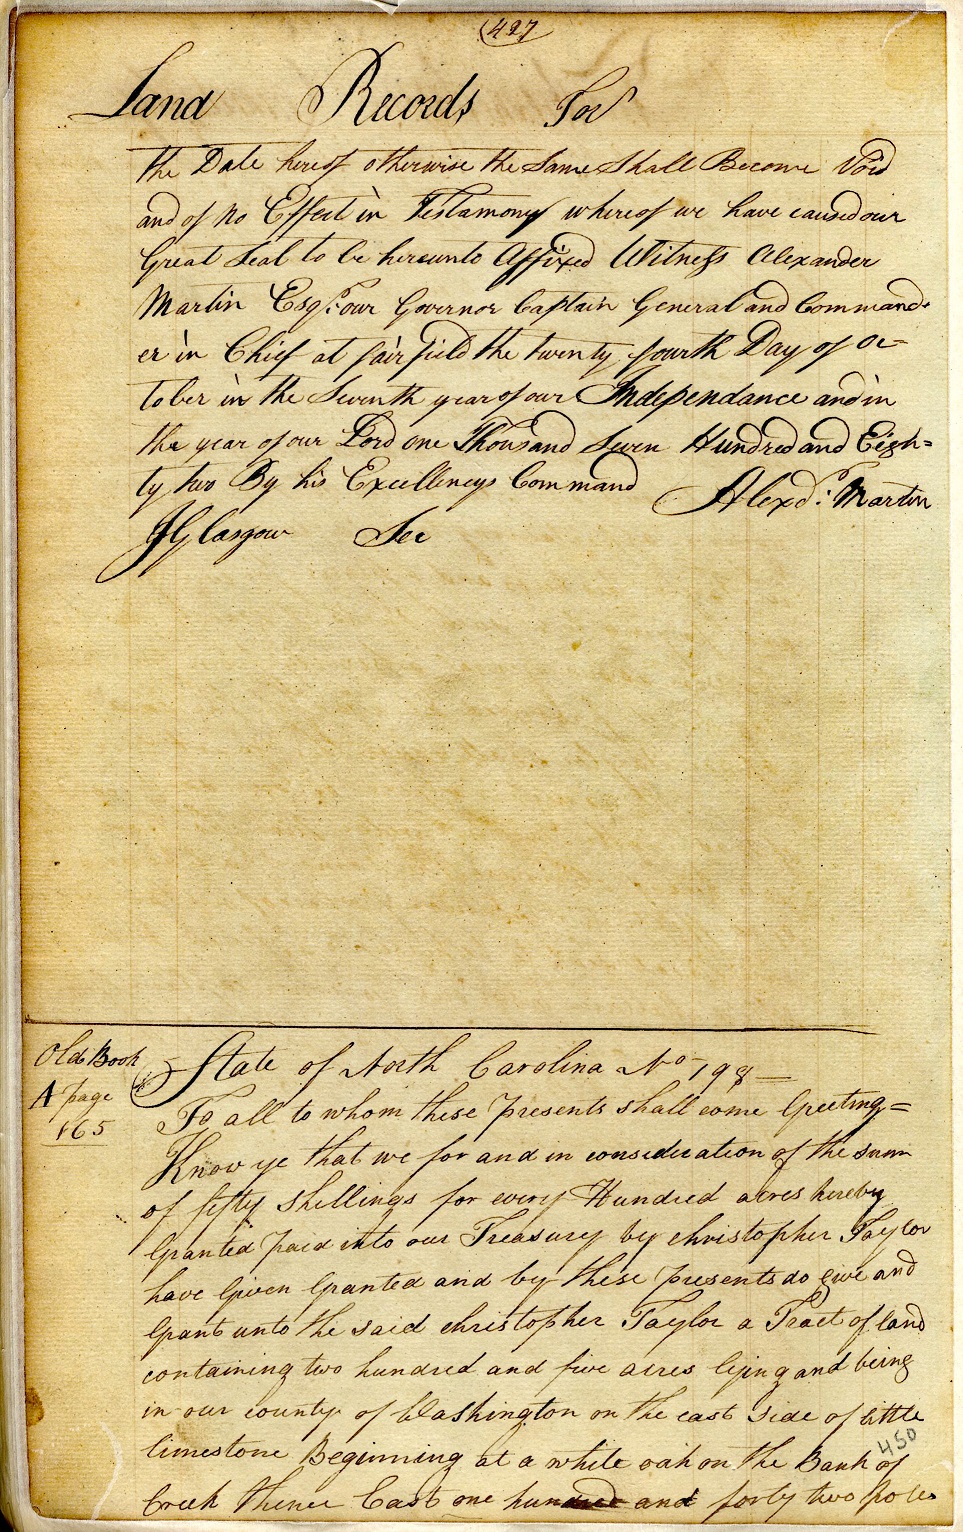 (427)
Land Records For
the Date hereof otherwise the Same Shall Become Void
and of no Effect in Testamony whereof we have caused our
Great Seal to be hereunto Affixed Witness Alexander
Martin Esqr. our Governor Captain General and Command-
er in Chief at fairfield the twenty fourth Day of Oc=
tober in the Seventh year of our Independance and in
the year of our Lord one Thousand Seven Hundred and Eigh=
ty two By his Excellencys Command Alexd: Martin
J Glasgow Sec
Old Book
A page
165
State of North Carolina No 198
To all to whom these presents shall come Greeting=
Know ye that we for and in consideration of the sum
of fifty shillings for every Hundred acres hereby
Granted paid into our Treasury by christopher Taylor
have Given Granted and by these presents do give and
Grant unto the said christopher Taylor a Tract of land
containing two hundred and five acres lying and being
in our county of Washington on the east side of little
limestone Beginning at a white oak on the Bank of
450
Creek thence East one hundred and forty two poles